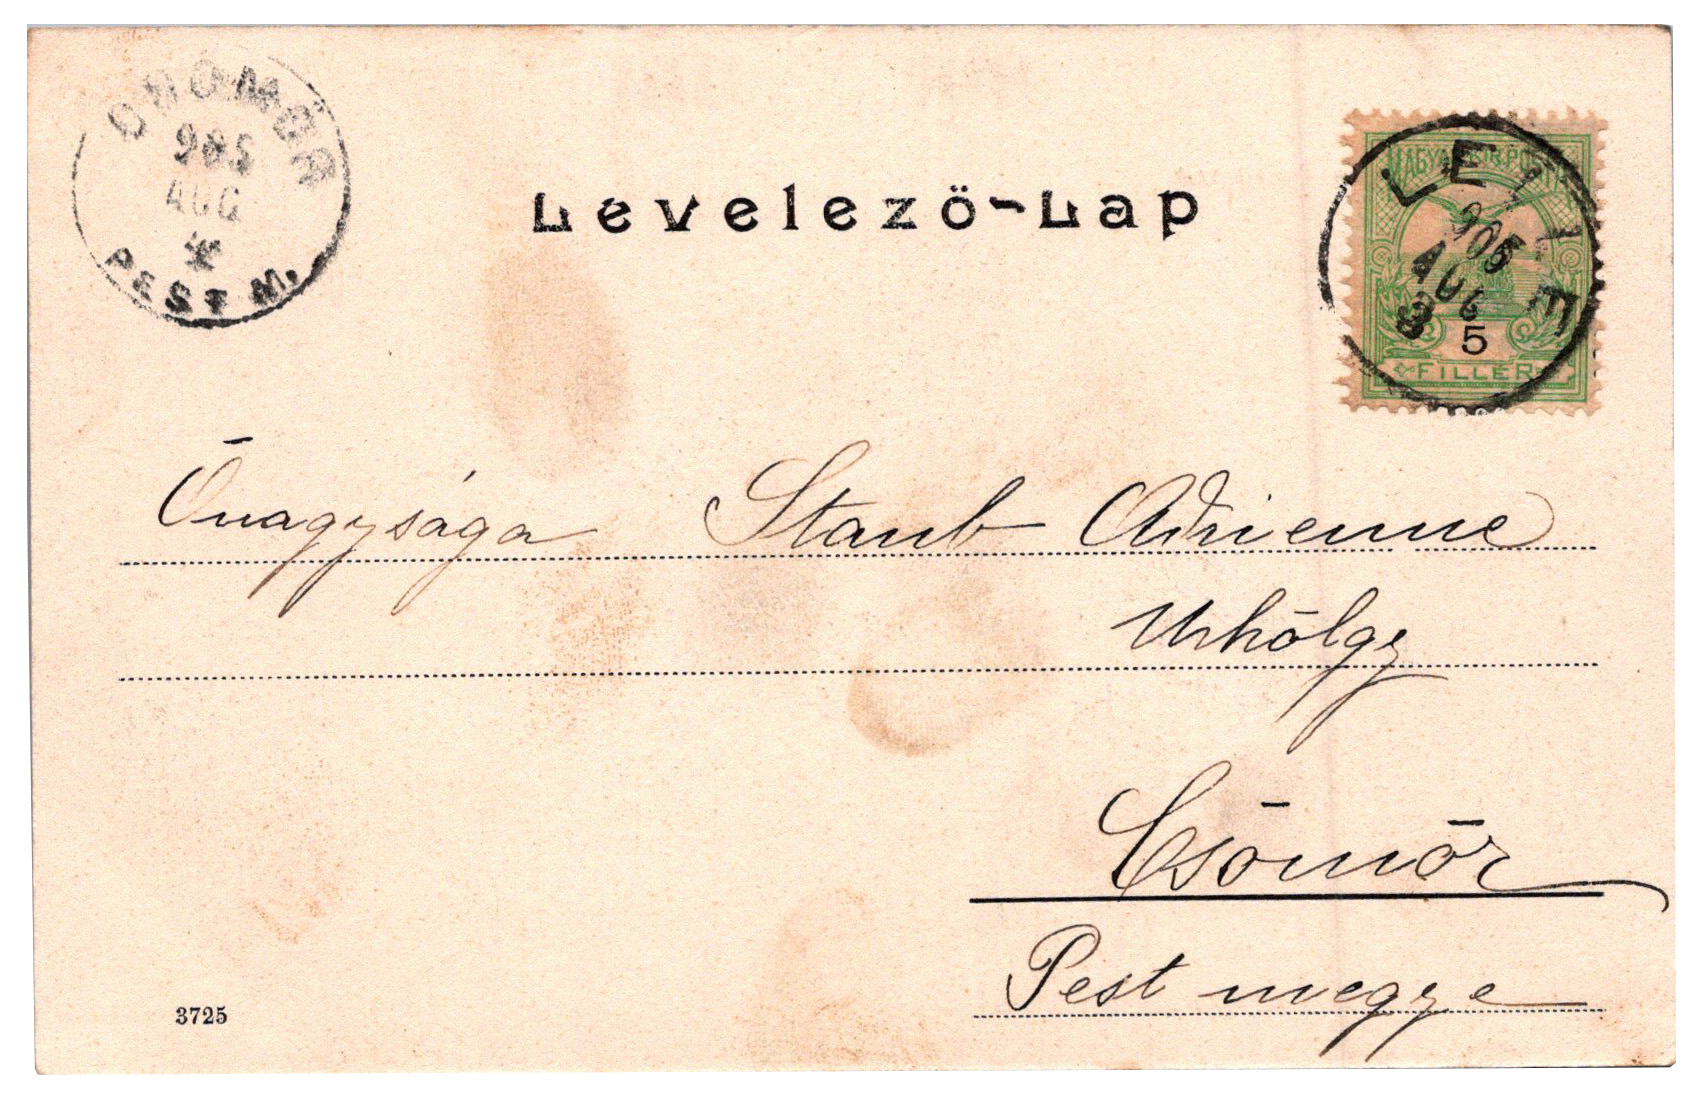 CSÖMÖR
905
AUG
PEST M.
Levelező-Lap
MAGYAR KIR. POSTA
905
AUG
5
FILLÉR
Őnagysága Staub Adrienne
Urhölgy
Csömör
Pest megye
3725